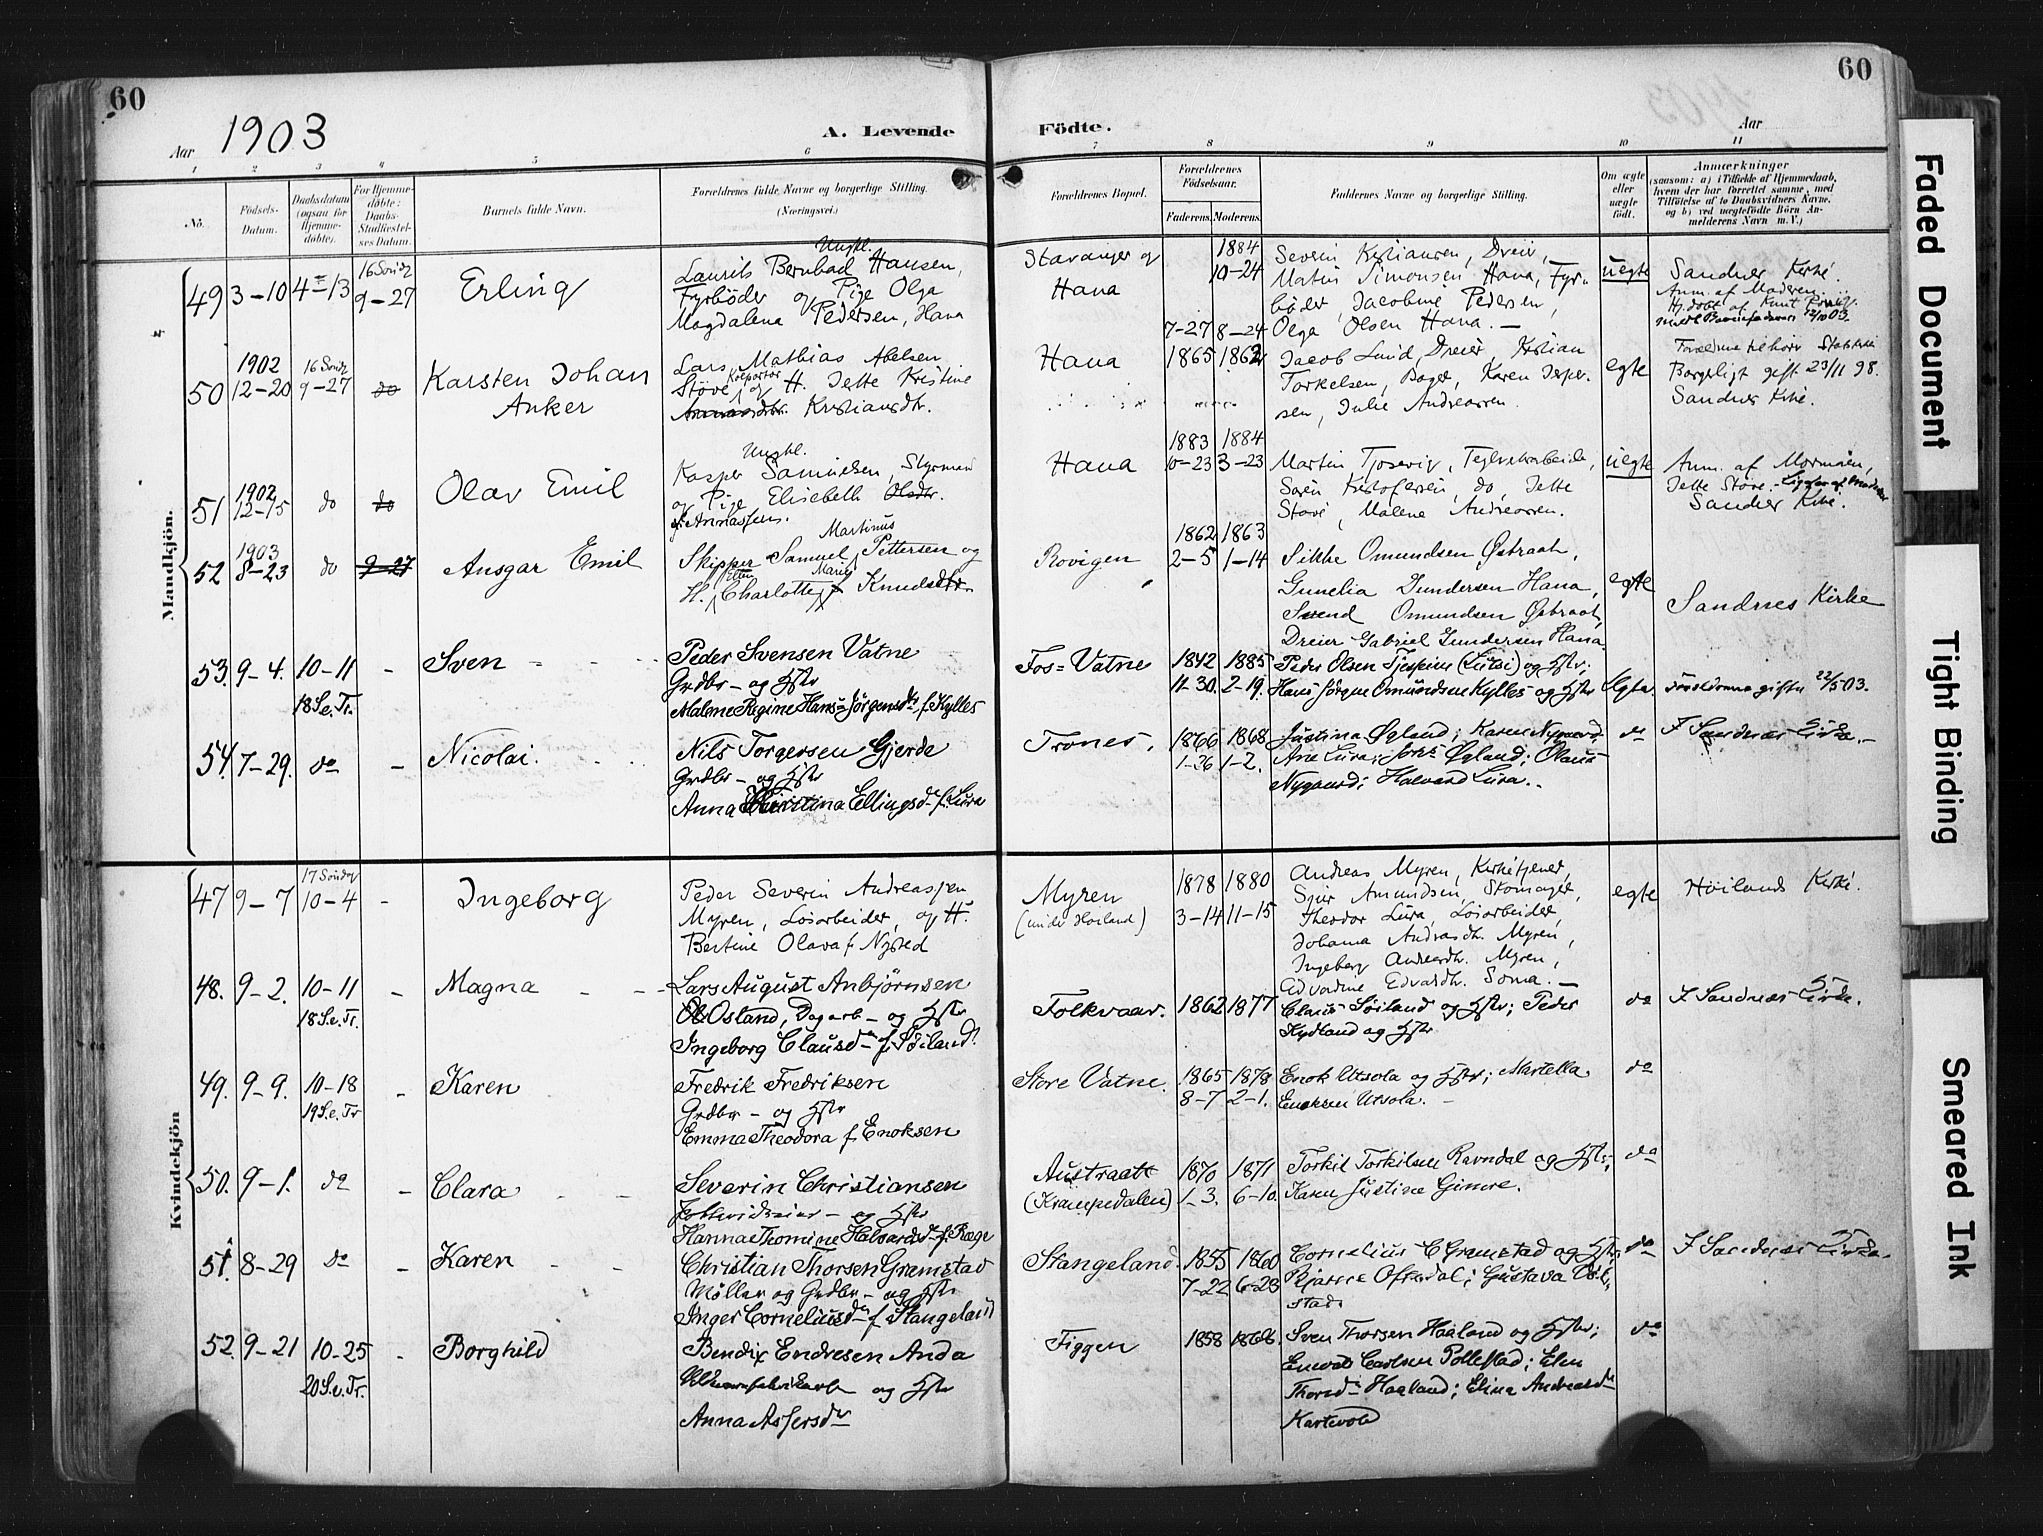 60
60
Aar 1903
A. Levende Födte.
Aar
1 2 3 4 5 6 7 8 9 10 11
No.
Födsels-Datum.
Daabsdatum (ogsaa for Hjemme-døbte).
For Hjemme-døbte: Daabs-Stadfæstel-ses Datum.
Barnets fulde Navn.
Forældrenes fulde Navne og borgerlige Stilling. (Næringsvei.)
Forældrenes Bopæl.
Forældrenes Fødselsaar.
Faderens. Moderens.
Faddernes Navne og borgerlige Stilling.
Om ægte eller uægte født.
Anmærkninger
(saasom: a) i Tilfælde af Hjemmedaab,
hvem der har forrettet samme, med
Tilføielse af to Daabsvidners Navne,
og b) ved uægtefødte Börn An-
melderens Navn m. V.)
Mandkjön.
49 3-10 4-13 16 Sönd 9-27
Erling
Ungkl.
Laurits Bernhad Hansen,
Fyrbøder og Pige Olga
Magdalena Pedersen, Hana
Stavanger og
Hana
1884
10-24
7-27 8-24
Severin Kristiansen, Dreier,
Martin Simonsen Hana, Fyr-
bøder, Jacobine Pedersen,
Olga Olsen Hana. —
uegte
Sandnes Kirke.
Anm. af Moderen.
50 1902 12-20 16 Sönd 9-27 do
Karsten Johan
Anker
Lars Mathias Abelsen
Støve Kolportør og H. Jette Kristine
Kristiansdtr.
Hana
1865 1862
Jacob Lund, Dreier, Kristian
Torkelsen, Bager, Karen Jesper-
sen, Julie Andreassen.
egte
Borgerligt gift 23/11 98.
Sandnes Kirke.
51 1902 12-15 do do
Olav Emil
Ungkl.
Kasper Samuelsen, Styrmand
og Pige Elisebeth Olsdtr.
Hana
1883 1884
10-23 3-23
Martin Tjosevig, Teglverkarbeide,
Søren Kristofersen, do, Jette
Støve, Malene Andreassen.
uegte
Anm. af Mormoren,
Jette Støve.
Sandnes Kirke.
52 1903 8-23 do 9-27
Ansgar Emil
Martinus
Skipper Samuel Pettersen og
Marie
H. Charlotte Knudsdtr.
Rovigen
1862 1863
2-5 1-14
Sikke Omundsen Østraat,
Gunelia Gundersen Hana,
Svend Omundsen Østraat,
Dreier Gabriel Gundersen Hana
egte
Sandnes Kirke
53. 9-4. 10-11 18 S.e.Tr. -
Sven
Peder Svensen Vatne
Grdbr - og Hstr
Malene Regine Hans-Jørgensdr f. Kylles
Fos-Vatne
1842 1885
11-30. 2-19.
Peder Olsen Tjespine (Lutsi) og Hstr.
Hans Jørgne Omundsene Kylles og Hstr
Egte.
Forældrene gifte 22/5 03.
54. 7-29. do -
Nicolai.
Nils Torgersen Gjerde
Grdbr - og Hstr
Anna Christina Ellingsd f. Lura
Trones.
1866 1868
1-26 1-2.
Justina Øgland; Karen Nygaard
Ane Lura; Øgland; Olaus
Nygaard; Halvard Lura.
do
I Sandnæs Kirke.
Kvindekjön
47 9-7 17 Söndag 10-4 -
Ingeborg
Peder Severin Andreassen
Myren, Loiarbeider, og H.
Bertine Olava f. Nysted
Myren
(under Hoiland)
1878 1880
3-14 11-15
Andreas Myren, Kirketjener,
Sjur Amundsen, Stomager,
Theodor Lura, Loiarbeider,
Johanna Andreasdtr. Myren,
Ingeborg Andreasdtr. Myren,
Edvardine Edvardtr. Soma. —
egte
Höilands Kirke.
48. 9-2. 10-11 18 S.e.Tr. -
Magna
Lars August Anbjørnsen
Ostand, Dagarb - og Hstr
Ingeborg Clausd f. Søiland
Folkvaar.
1862 1877
Claus Søiland og Hstr; Peder
Kydland og Hstr
do
I Sandnæs Kirke.
49. 9-9. 10-18 19 S.e.Tr -
Karen
Fredrik Fredriksen
Grdbr - og Hstr
Emma Theodora f. Enoksen
Store Vatne.
1865 1878
8-7 2-1.
Enok Utsola og Hstr; Martella
Enoksen Utsola. -
do
50. 9-1. do -
Clara
Severin Christiansen
- og Hstr
Hanna Thomine Halvorsd f. Røge
Austraatt
(Krampedalen)
1870 1871
1-3. 6-10.
Torkil Torkilsen Ravndal og Hstr;
Karen Justine Gimre.
do
51. 8-29 do -
Karen
Christian Thorsen Gramstad
Møller og Grdbr - og Hstr
Inger Corneliusd f. Stangeland
Stangeland.
1855 1860
7-22 6-28
Cornelius C Gramstad og Hstr;
Bjarne Ofredal; Gustava
stad.
do
I Sandnæs Kirke.
52. 9-21 10-25 20 S.e.Tr. -
Borghild
Bendix Endresen Anda
og Hstr
Anna Asfersdr
Figgen
1858 1868.
Sven Thorsen Haaland og Hstr;
Enevald Carlsen Pollestad; Elen
Thorsd Haaland; Elina Andreasd
Kartevold
do
Faded Document
Tight Binding
Smeared Ink